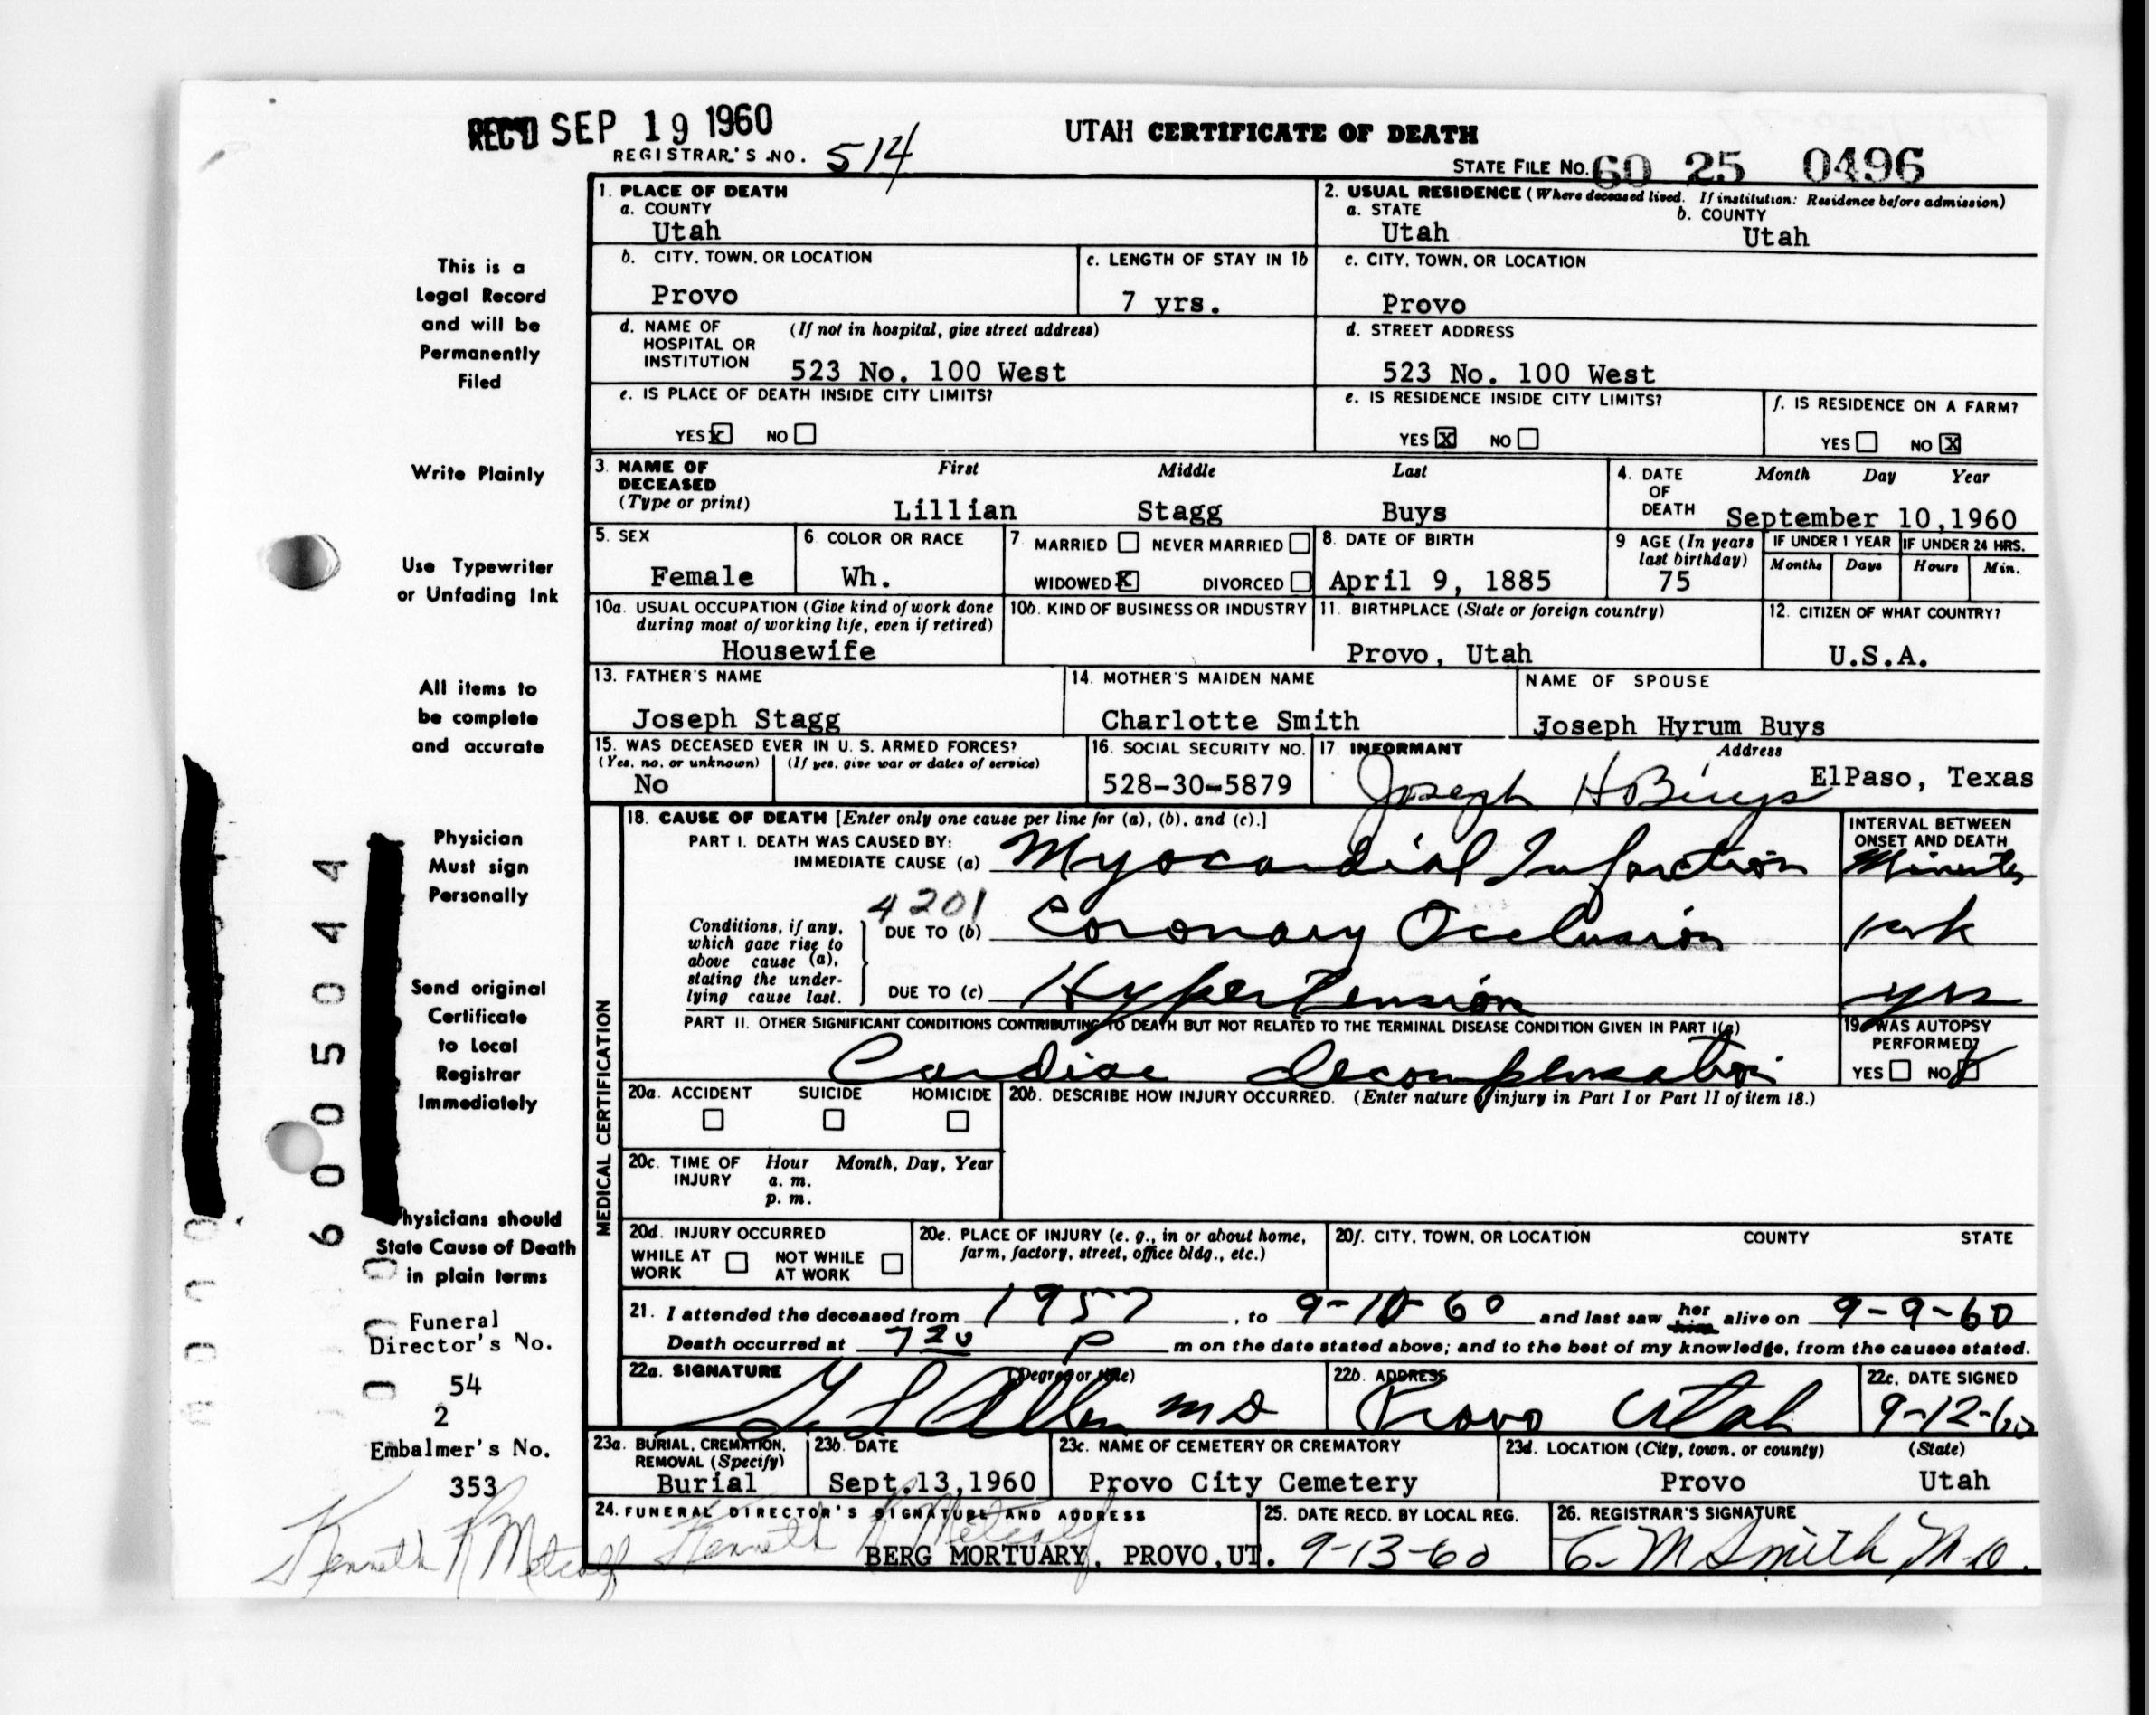 REC'D SEP 19 1960
UTAH CERTIFICATE OF DEATH
REGISTRAR'S NO. 514
STATE FILE NO. 60 25 0496
This is a
Legal Record
and will be
Permanently
Filed
Write Plainly
Use Typewriter
or Unfading Ink
All items to
be complete
and accurate
Physician
Must sign
Personally
Send original
Certificate
to Local
Registrar
Immediately
hysicians should
State Cause of Death
in plain terms
Funeral
Director's No.
54
2
Embalmer's No.
353
Kenneth R Metcalf
6005044
1. PLACE OF DEATH
a. COUNTY
Utah
2. USUAL RESIDENCE (Where deceased lived. If institution: Residence before admission)
a. STATE
Utah
b. COUNTY
Utah
b. CITY, TOWN, OR LOCATION
Provo
c. LENGTH OF STAY IN 1b
7 yrs.
c. CITY, TOWN, OR LOCATION
Provo
d. NAME OF HOSPITAL OR INSTITUTION (If not in hospital, give street address)
523 No. 100 West
d. STREET ADDRESS
523 No. 100 West
e. IS PLACE OF DEATH INSIDE CITY LIMITS?
YES X NO
e. IS RESIDENCE INSIDE CITY LIMITS?
YES X NO
f. IS RESIDENCE ON A FARM?
YES NO X
3. NAME OF DECEASED (Type or print)
First Middle Last
Lillian Stagg Buys
4. DATE OF DEATH Month Day Year
September 10,1960
5. SEX
Female
6. COLOR OR RACE
Wh.
7. MARRIED NEVER MARRIED
WIDOWED X DIVORCED
8. DATE OF BIRTH
April 9, 1885
9 AGE (In years last birthday)
75
IF UNDER 1 YEAR IF UNDER 24 HRS.
Months Days Hours Min.
10a. USUAL OCCUPATION (Give kind of work done during most of working life, even if retired)
Housewife
10b. KIND OF BUSINESS OR INDUSTRY
11. BIRTHPLACE (State or foreign country)
Provo, Utah
12. CITIZEN OF WHAT COUNTRY?
U.S.A.
13. FATHER'S NAME
Joseph Stagg
14. MOTHER'S MAIDEN NAME
Charlotte Smith
NAME OF SPOUSE
Joseph Hyrum Buys
15. WAS DECEASED EVER IN U. S. ARMED FORCES?
(Yes, no, or unknown) (If yes, give war or dates of service)
No
16. SOCIAL SECURITY NO.
528-30-5879
17. INFORMANT Address
Joseph H Buys ElPaso, Texas
MEDICAL CERTIFICATION
18. CAUSE OF DEATH [Enter only one cause per line for (a), (b), and (c).]
PART I. DEATH WAS CAUSED BY:
IMMEDIATE CAUSE (a) Myocardial Infarction
INTERVAL BETWEEN ONSET AND DEATH
Minutes
4201
Conditions, if any, which gave rise to above cause (a), stating the underlying cause last.
DUE TO (b) Coronary Occlusion
1 wk
DUE TO (c) Hypertension
yrs
PART II. OTHER SIGNIFICANT CONDITIONS CONTRIBUTING TO DEATH BUT NOT RELATED TO THE TERMINAL DISEASE CONDITION GIVEN IN PART I(a)
Cardiac decompensation
19. WAS AUTOPSY PERFORMED?
YES NO
20a. ACCIDENT SUICIDE HOMICIDE
20b. DESCRIBE HOW INJURY OCCURRED. (Enter nature of injury in Part I or Part II of item 18.)
20c. TIME OF INJURY Hour Month, Day, Year
a. m.
p. m.
20d. INJURY OCCURRED
WHILE AT WORK NOT WHILE AT WORK
20e. PLACE OF INJURY (e. g., in or about home, farm, factory, street, office bldg., etc.)
20f. CITY, TOWN, OR LOCATION COUNTY STATE
21. I attended the deceased from 1957, to 9-10-60 and last saw her him alive on 9-9-60
Death occurred at 720 P m on the date stated above; and to the best of my knowledge, from the causes stated.
22a. SIGNATURE (Degree or title)
Allen MD
22b. ADDRESS
Provo Utah
22c. DATE SIGNED
9-12-60
23a. BURIAL, CREMATION, REMOVAL (Specify)
Burial
23b. DATE
Sept.13,1960
23c. NAME OF CEMETERY OR CREMATORY
Provo City Cemetery
23d. LOCATION (City, town, or county) (State)
Provo Utah
24. FUNERAL DIRECTOR'S SIGNATURE AND ADDRESS
Kenneth R Metcalf
BERG MORTUARY, PROVO,UT.
25. DATE RECD. BY LOCAL REG.
9-13-60
26. REGISTRAR'S SIGNATURE
M Smith M.D.